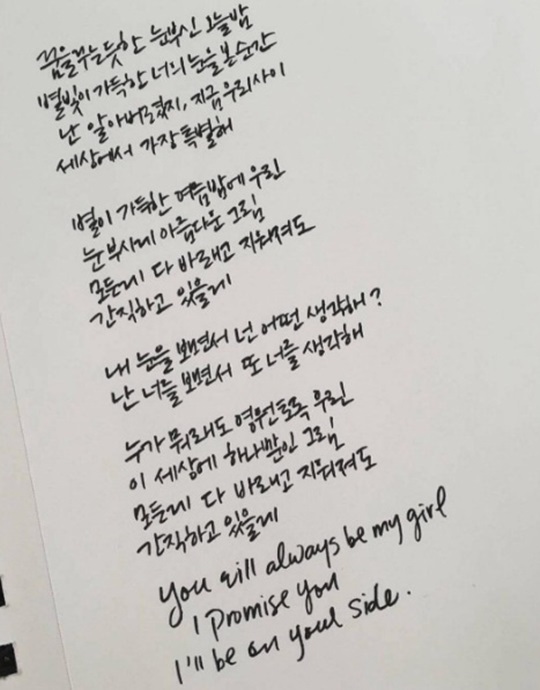 꿈을꾸는듯한 눈부신 오늘밤
별빛이 가득한 너의 눈을 본순간
난 알아버렸지, 지금 우리사이
세상에서 가장 특별해
별이 가득한 여름밤에 우린
눈부시게 아름다운 그림
모든게 다 바래고 지워져도
간직하고 있을게
내 눈을 보면서 넌 어떤 생각해?
난 너를 보면서 또 너를 생각해
누가 뭐래도 영원토록 우린
이 세상에 하나뿐인 그림
모든게 다 바래고 지워져도
간직하고 있을게
You will always be my girl
I Promise You
I'll be on your side.